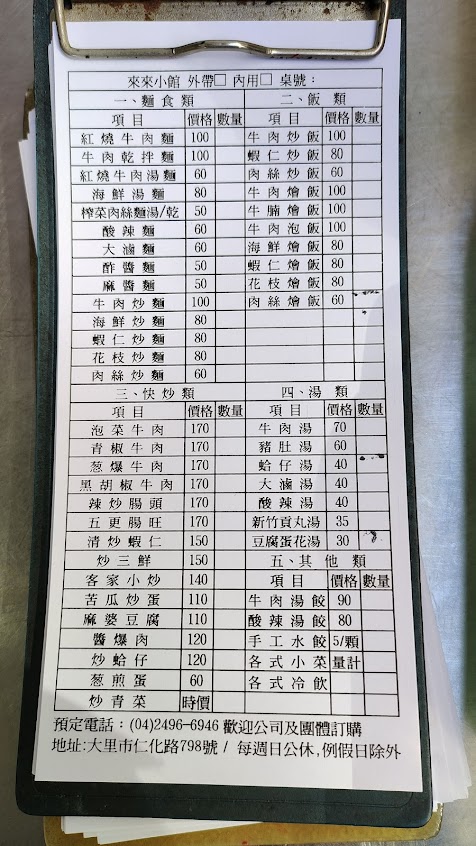 來來小館 外帶□ 內用□ 桌號：
一、麵食類
項目 價格 數量
紅燒牛肉麵 100
牛肉乾拌麵 100
紅燒牛肉湯麵 60
海鮮湯麵 80
榨菜肉絲麵湯/乾 50
酸辣麵 60
大滷麵 60
酢醬麵 50
麻醬麵 50
牛肉炒麵 100
海鮮炒麵 80
蝦仁炒麵 80
花枝炒麵 80
肉絲炒麵 60
二、飯類
項目 價格 數量
牛肉炒飯 100
蝦仁炒飯 80
肉絲炒飯 60
牛肉燴飯 100
牛腩燴飯 100
牛肉泡飯 100
海鮮燴飯 80
蝦仁燴飯 80
花枝燴飯 80
肉絲燴飯 60
三、快炒類
項目 價格 數量
泡菜牛肉 170
青椒牛肉 170
葱爆牛肉 170
黑胡椒牛肉 170
辣炒腸頭 170
五更腸旺 170
清炒蝦仁 150
炒三鮮 150
客家小炒 140
苦瓜炒蛋 110
麻婆豆腐 110
醬爆肉 120
炒蛤仔 120
葱煎蛋 60
炒青菜 時價
四、湯類
項目 價格 數量
牛肉湯 70
豬肚湯 60
蛤仔湯 40
大滷湯 40
酸辣湯 40
新竹貢丸湯 35
豆腐蛋花湯 30
五、其他類
項目 價格 數量
牛肉湯餃 90
酸辣湯餃 80
手工水餃 5/顆
各式小菜 量計
各式冷飲
預定電話：(04)2496-6946 歡迎公司及團體訂購
地址:大里市仁化路798號 / 每週日公休,例假日除外